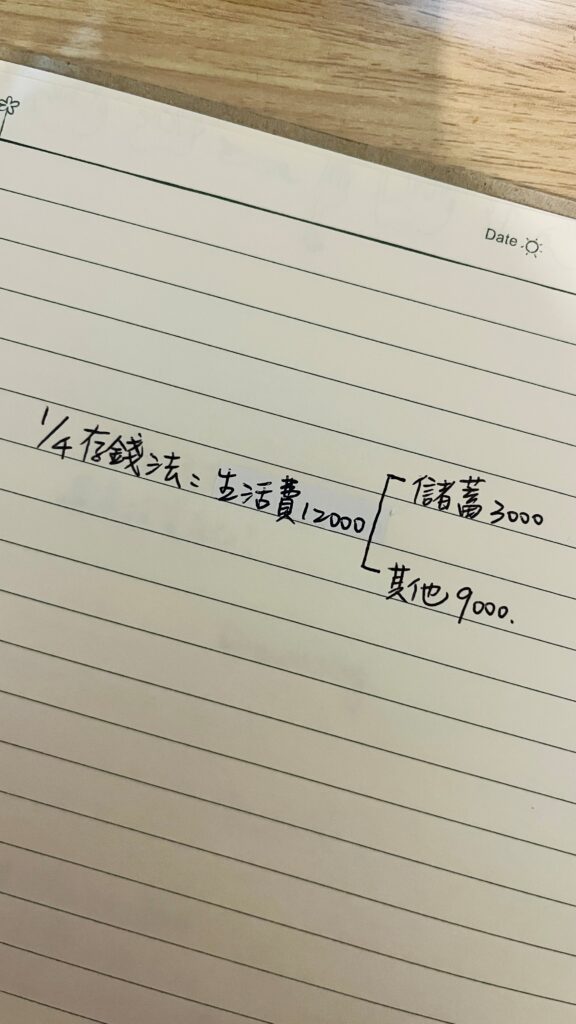 Date
1/4存錢法：生活費12000
儲蓄3000
其他9000.